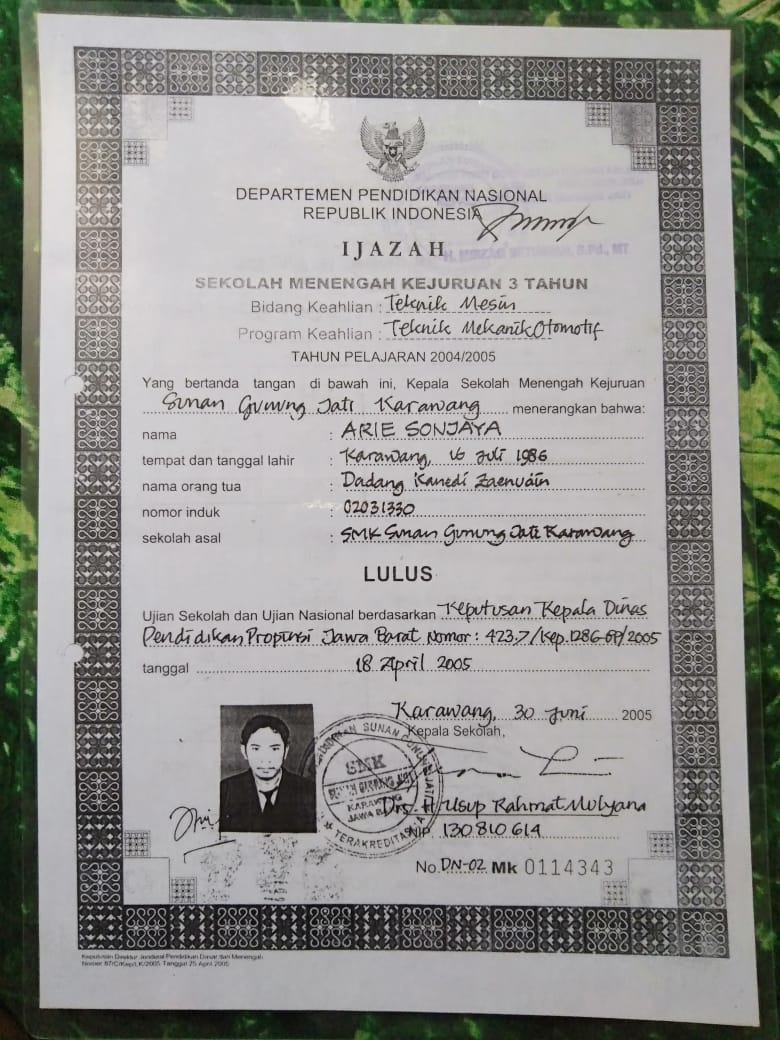 DEPARTEMEN PENDIDIKAN NASIONAL
REPUBLIK INDONESIA
IJAZAH
SEKOLAH MENENGAH KEJURUAN 3 TAHUN
Bidang Keahlian : Teknik Mesin
Program Keahlian : Teknik Mekanik Otomotif
TAHUN PELAJARAN 2004/2005
Yang bertanda tangan di bawah ini, Kepala Sekolah Menengah Kejuruan
Sunan Gunung Jati Karawang menerangkan bahwa:
nama : ARIE SONJAYA
tempat dan tanggal lahir : Karawang, 16 Juli 1986
nama orang tua : Dadang Kanedi
nomor induk : 02031330
sekolah asal : SMK Sunan Gunung Jati Karawang
LULUS
Ujian Sekolah dan Ujian Nasional berdasarkan Keputusan Kepala Dinas
Pendidikan Propinsi Jawa Barat Nomor : 423.7/Kep.1286
tanggal 18 April 2005
Karawang, 30 Juni 2005
Kepala Sekolah,
SMK
SUNAN GUNUNG JATI
KARAWANG
JAWA BARAT
TERAKREDITASI
Drs. H. Usup Rahmat Mulyana
NIP. 130 810 614
No. DN-02 Mk 0114343
Keputusan Direktur Jenderal Pendidikan Dasar dan Menengah
Nomor 87/C/Kep/LK/2005 Tanggal 25 April 2005